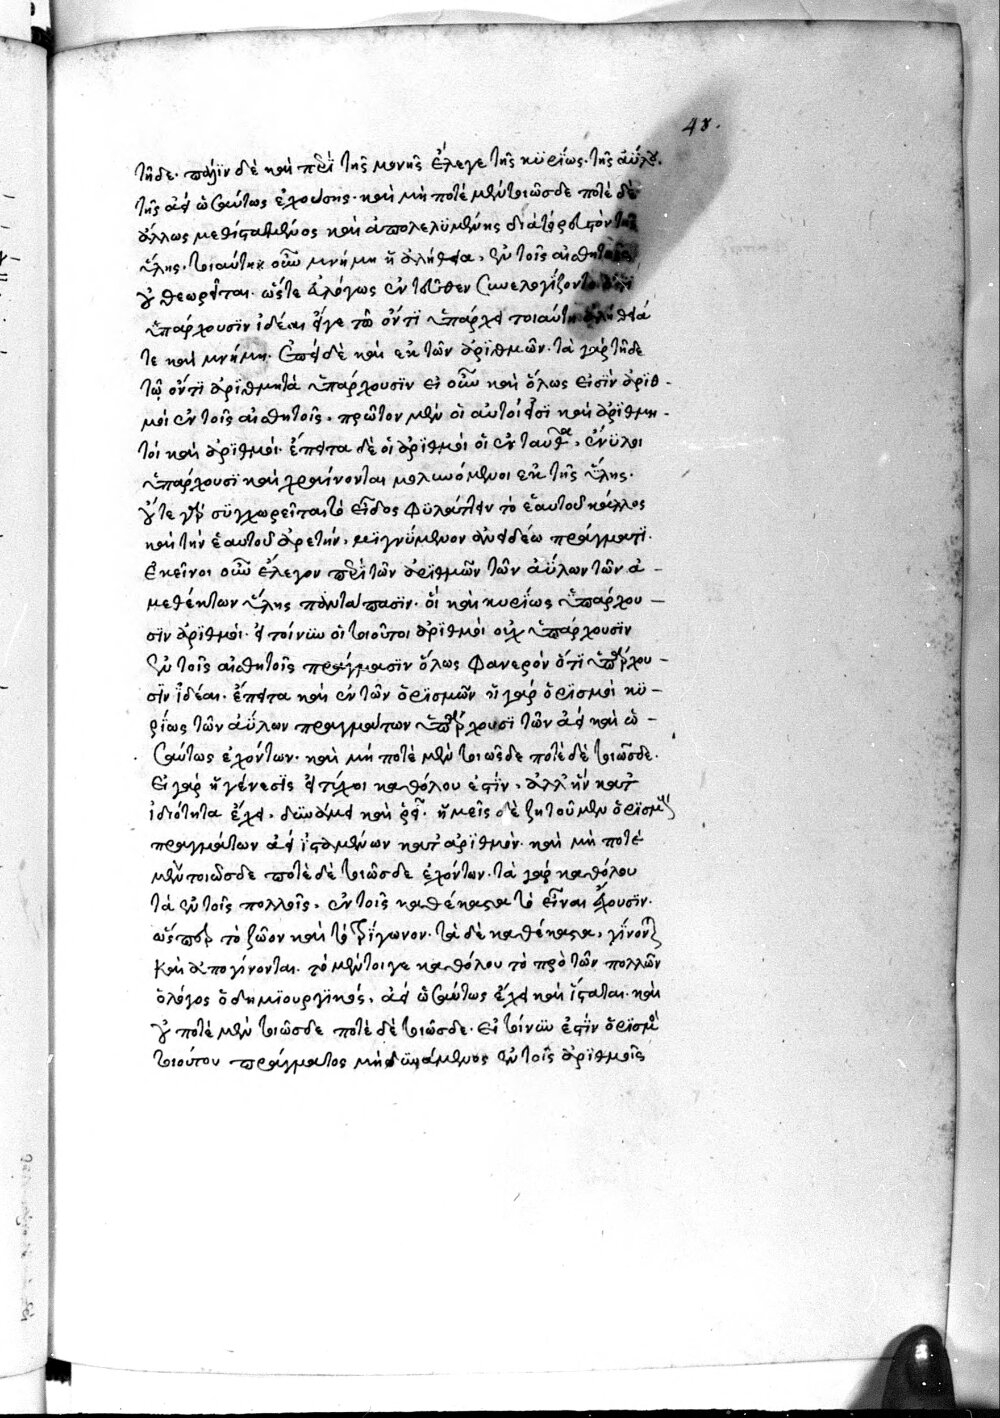 48.
τῆδε. πάλιν δὲ καὶ περὶ τῆς μονῆς ἔλεγε τῆς κυρίως. τῆς ἀΰλου.
τῆς ἀεὶ ὡσαύτως ἐχούσης. καὶ μὴ ποτὲ μὲν τοιῶσδε ποτὲ δὲ
ἄλλως μεθισταμένος καὶ ἀπολελυμένης διὰ τὸ ῥευστὸν τῆς
ὕλης. τοιαύτη οὖν μνήμη ἢ ἀλήθεια, ἐν τοῖς αἰσθητοῖς
οὐ θεωρεῖται. ὥστε εὐλόγως ἐντεῦθεν συνελογίζοντο ὅτι
ὑπάρχουσϊν ἰδέαι εἴγε τῶ ὄντϊ ὑπάρχει τοιαύτη ἀλήθειά
τε καὶ μνήμη. ἔπειτα δὲ καὶ ἐκ τῶν ἀρϊθμῶν. τὰ γὰρ τῆδε
τῶ ὄντϊ ἀρϊθμητὰ ὑπάρχουσϊν εἰ οὖν καὶ ὅλως εἰσὶν ἀρϊθ-
μοὶ ἐν τοῖς αἰσθητοῖς, πρῶτον μὲν οἱ αὐτοί εἰσϊ καὶ ἀρϊθμη-
τοὶ καὶ ἀρϊθμοί. ἔπειτα δὲ οἱ ἀρϊθμοὶ οἱ ἐνταῦθα, ἔνϋλοι
ὑπάρχουσϊ καὶ χραίνονται μολυνόμενοι ἐκ τῆς ὕλης.
οὔτε γὰρ συγχωρεῖται τὸ εἶδος φϋλάττειν τὸ ἑαυτοῦ κάλλος
καὶ τὴν ἑαυτοῦ ἀρετήν, μϊγνύμενον ἀνειδέω πράγματϊ.
Ἐκεῖνοι οὖν ἔλεγον περὶ τῶν ἀρϊθμῶν τῶν ἀΰλων τῶν ἀ-
μεθέκτων ὕλης παντάπασϊν. οἳ καὶ κυρίως ὑπάρχου-
σϊν ἀρϊθμοί. εἰ τοίνυν οἱ τοιοῦτοι ἀρϊθμοὶ οὐχ ὑπάρχουσϊν
ἐν τοῖς αἰσθητοῖς πράγμασϊν ὅλως φανερὸν ὅτϊ ὑπάρχου-
σϊν ἰδέαι. ἔπειτα καὶ ἐκ τῶν ὁρϊσμῶν οἱ γὰρ ὁρϊσμοὶ κυ-
ρίως τῶν ἀΰλων πραγμάτων ὑπάρχουσϊ τῶν ἀεὶ καὶ ὡ-
σαύτως ἐχόντων. καὶ μὴ ποτὲ μὲν τοιῶσδε ποτὲ δὲ τοιῶσδε.
Εἰ γὰρ ἡ γένεσϊς εἰ τύχοι καθόλου ἐστϊν, ἀλλ' ἣν κατ'
ἰδιότητα ἔχει, δινάμει καὶ ῥεῖ. ἡμεῖς δὲ ζητοῦμεν ὁρϊσμοὺς
πραγμάτων ἀεὶ ἱσταμένων κατ' ἀρϊθμόν. καὶ μὴ ποτὲ
μὲν τοιῶσδε ποτὲ δὲ τοιῶσδε ἐχόντων. τὰ γὰρ καθόλου
τὰ ἐν τοῖς πολλοῖς, ἐν τοῖς καθέκαστα τὸ εἶναι ἔχουσϊν.
ὥσπερ τὸ ζῶον καὶ τὸ τρίγωνον. τὰ δὲ καθέκαστα, γίνονται
καὶ ἀπογίνονται. τὸ μέντοι γε καθόλου τὸ πρὸ τῶν πολλῶν
ὁ λόγος ὁ δημϊουργϊκός, ἀεὶ ὡσαύτως ἔχει καὶ ἵσταται. καὶ
οὐ ποτὲ μὲν τοιῶσδε ποτὲ δὲ τοιῶσδε. εἰ τοίνυν ἐστϊν ὁρϊσμὸς
τοιούτου πράγματος μὴ δυνάμενος ἐν τοῖς ἀρϊθμοῖς